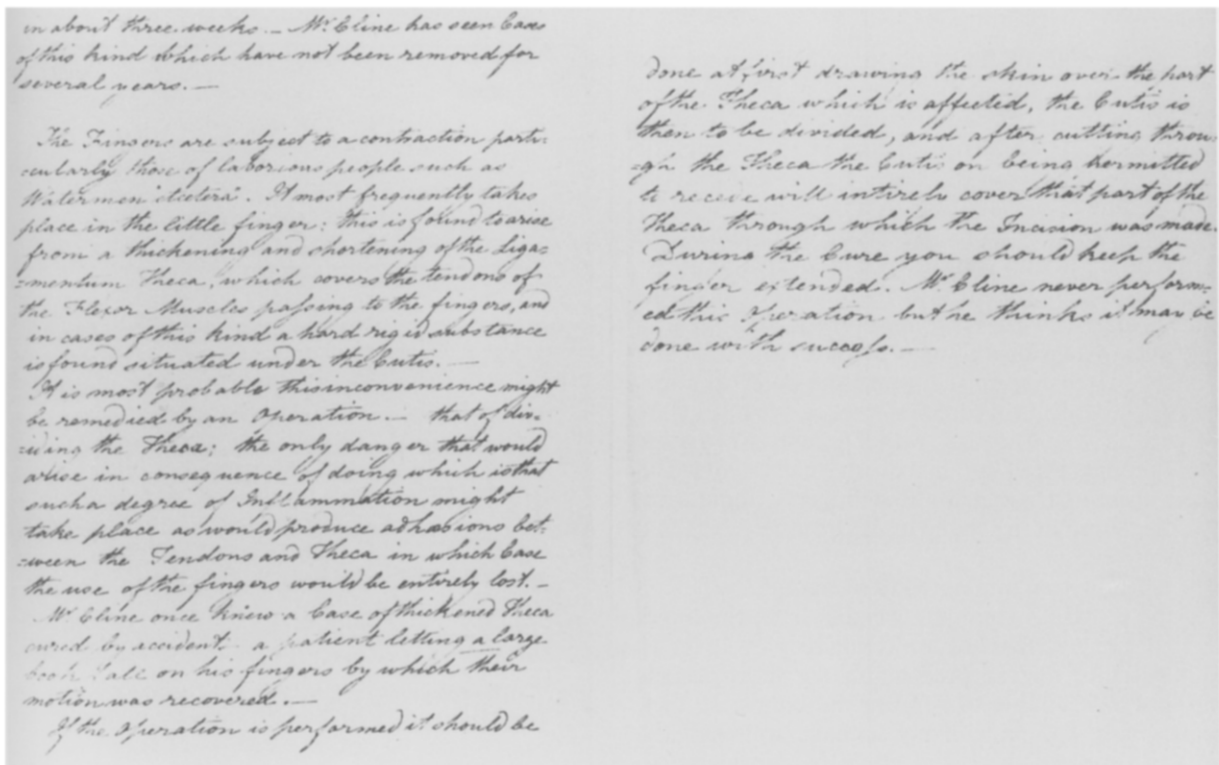 in about three weeks. — Mr Cline has seen Cases
of this kind which have not been removed for
several years. —
The Fingers are subject to a contraction parti-
cularly those of laborious people such as
Watermen etcetera. It most frequently takes
place in the little finger: this is found to arise
from a thickening and shortening of the Liga=
=mentum Theca, which covers the tendons of
the Flexor Muscles passing to the fingers, and
in cases of this kind a hard rigid substance
is found situated under the Cutis. —
It is most probable this inconvenience might
be remedied by an Operation. — that of div-
=iding the Theca; the only danger that would
arise in consequence of doing which is that
such a degree of Inflammation might
take place as would produce adhæsions bet-
=ween the Tendons and Theca in which Case
the use of the fingers would be entirely lost. —
Mr Cline once knew a Case of thickened Theca
cured by accident a patient letting a large
book fall on his fingers by which their
motion was recovered. —
If the Operation is performed it should be
done at first drawing the skin over the part
of the Theca which is affected, the Cutis is
then to be divided, and after cutting throu-
=gh the Theca the Cutis on being permitted
to recede will intirely cover that part of the
Theca through which the Incision was made.
During the Cure you should keep the
finger extended. Mr Cline never perform=
ed this Operation but he thinks it may be
done with success. —